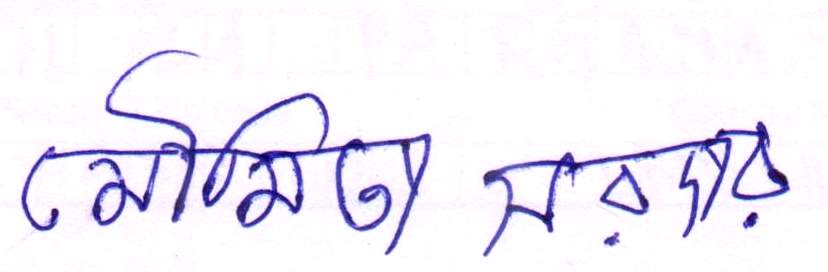 মৌমিতা সরদার